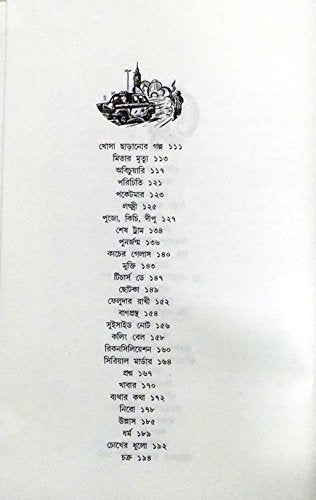 খোসা ছাড়ানোর গল্প ১১১
মিতার মৃত্যু ১১৩
অবিচুয়ারি ১১৭
পরিচিতি ১২১
পকেটমার ১২৩
লক্ষ্মী ১২৫
পুজো, কিচি, দীপু ১২৭
শেষ ট্রাম ১৩৪
পুনর্জন্ম ১৩৬
কাচের গেলাস ১৪০
মুক্তি ১৪৩
টিচার্স ডে ১৪৭
ছোটকা ১৪৯
ফেলুদার রাখী ১৫২
বাণপ্রস্থ ১৫৪
সুইসাইড নোট ১৫৬
কলিং বেল ১৫৮
রিকনসিলিয়েশন ১৬০
সিরিয়াল মার্ডার ১৬৪
প্রশ্ন ১৬৭
খাবার ১৭০
ব্যথার কথা ১৭২
নিরো ১৭৮
উল্লাস ১৮৫
ধর্ম ১৮৯
চোখের ধুলো ১৯২
চক্র ১৯৪